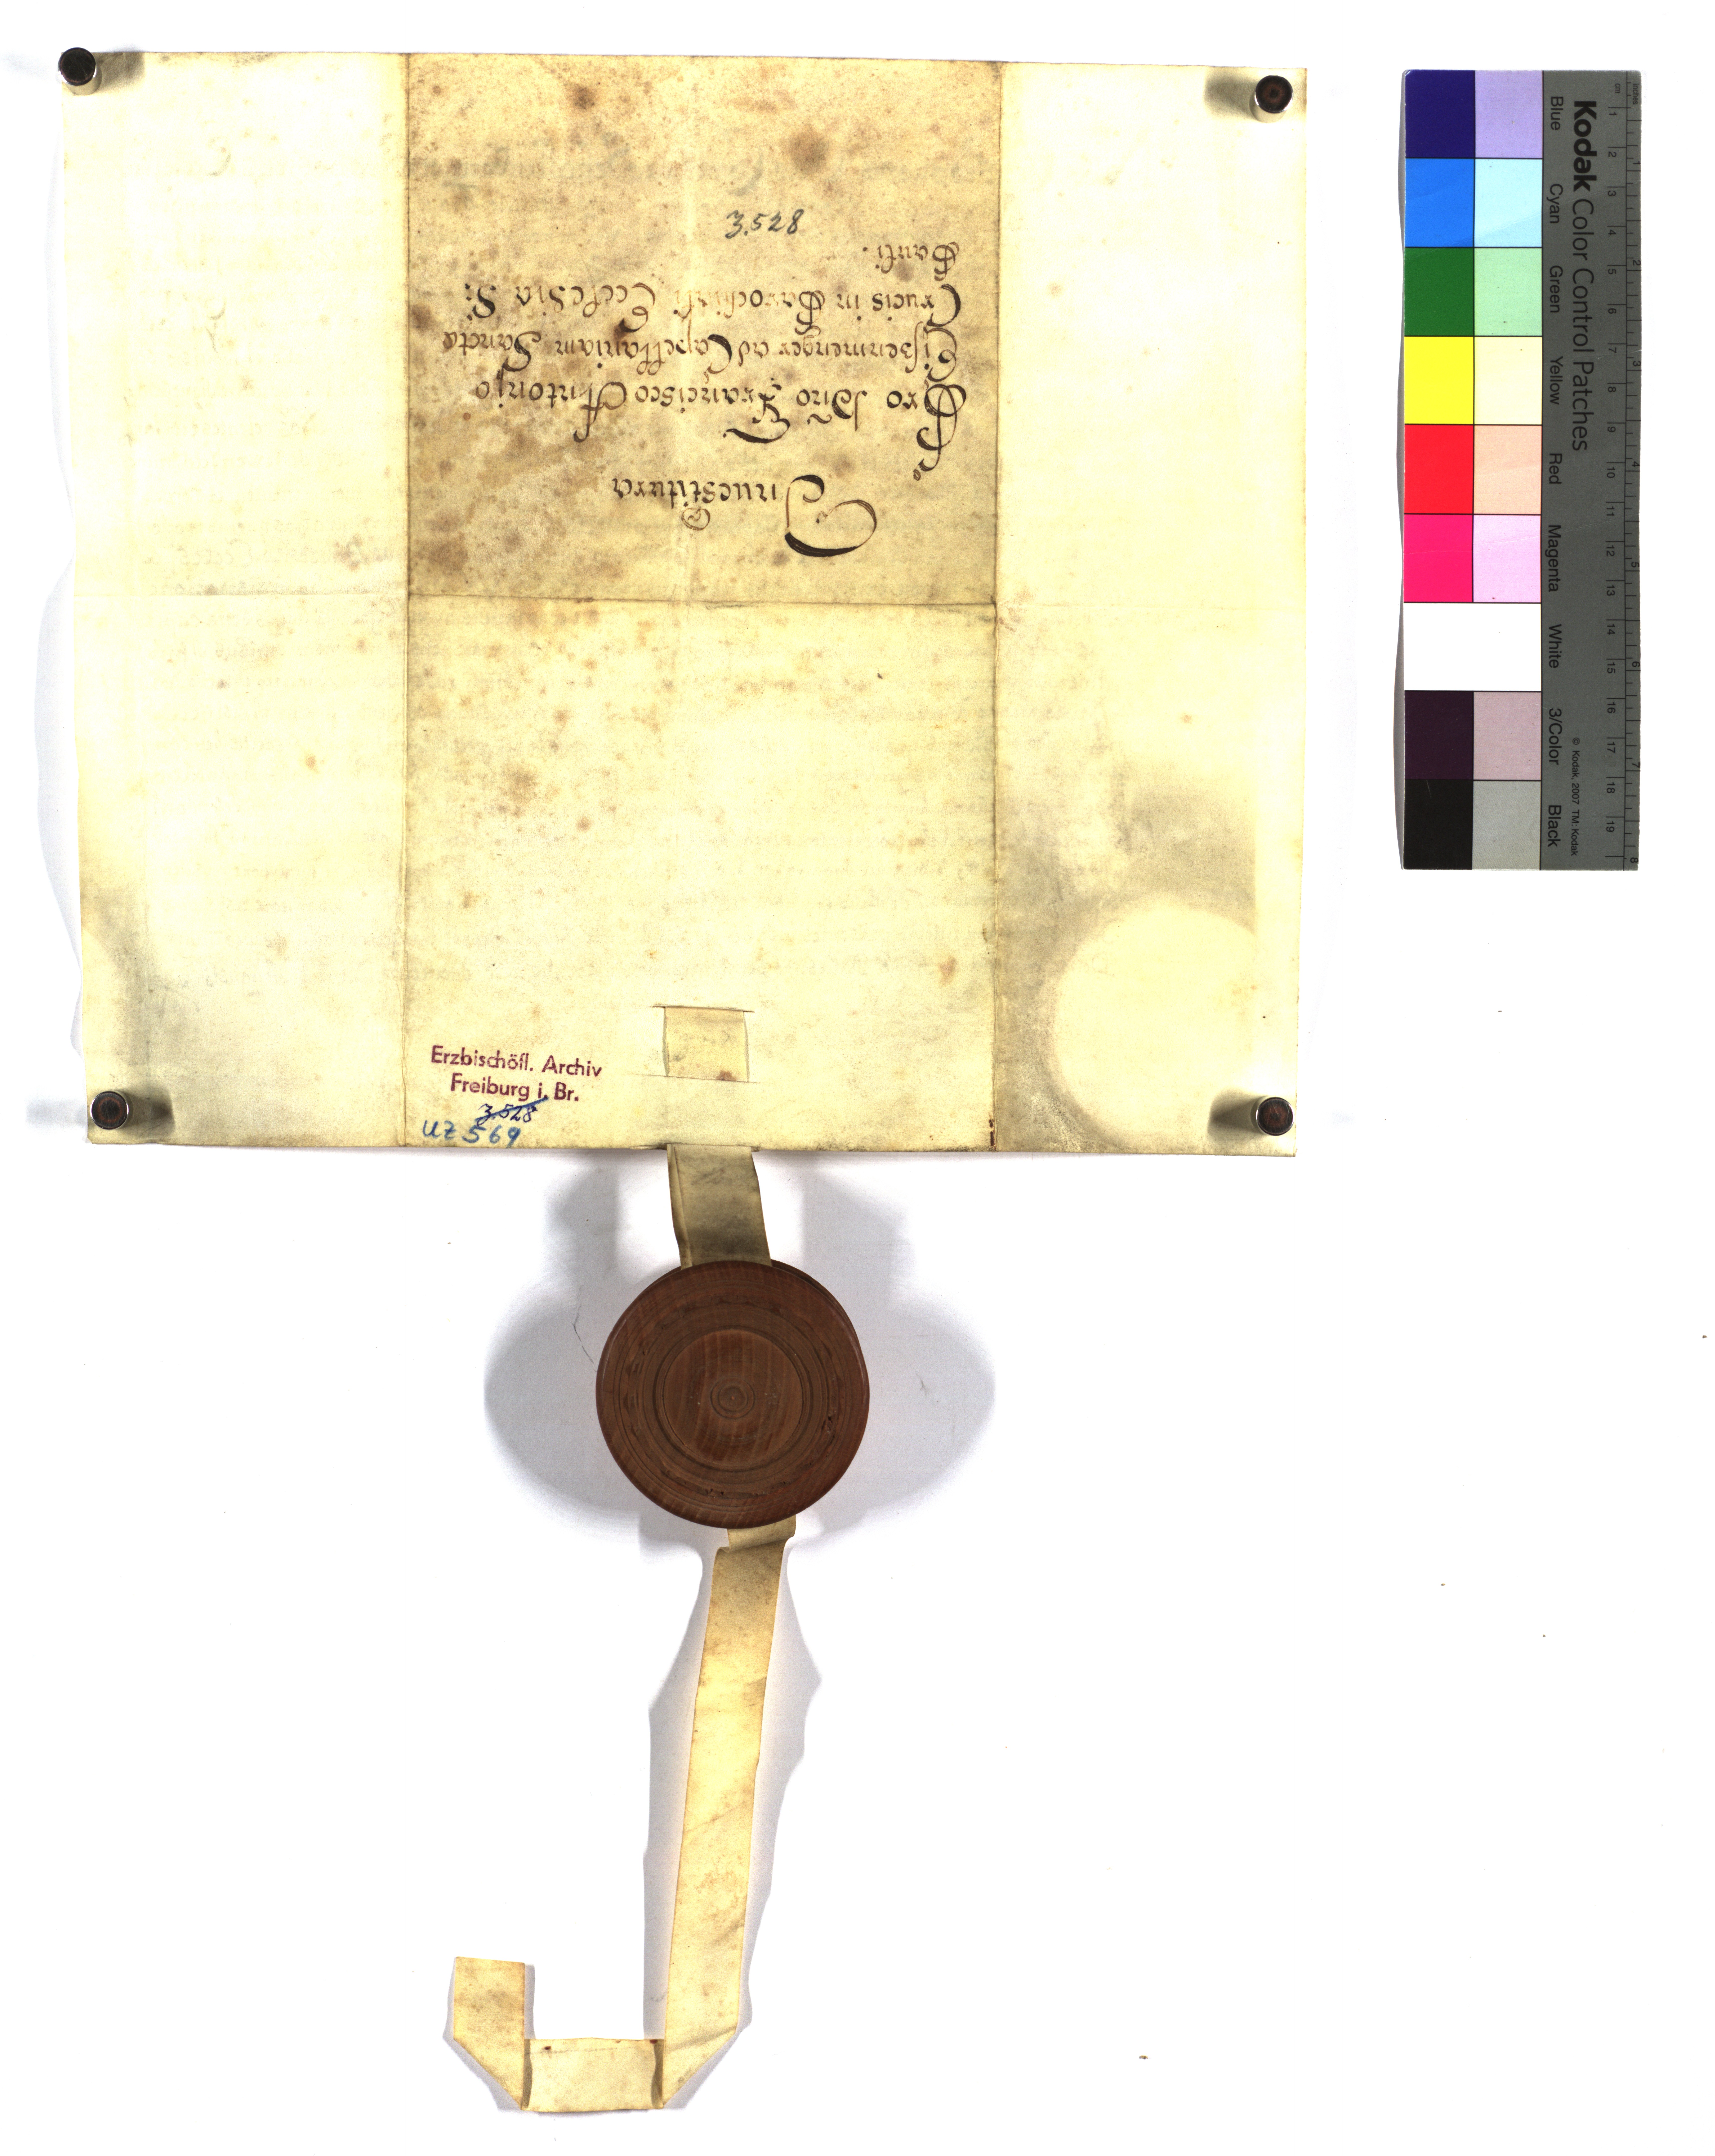 Inuestitura
Pro Dño Francisco Antonio
Eißenmenger ad Capellaniam Sanctæ
Crucis in Parochiali Ecclesia S:
Pauli.
3.528
Erzbischöfl. Archiv
Freiburg i. Br.
3.528
UZ 569
Kodak Color Control Patches
Blue Cyan Green Yellow Red Magenta White 3/Color Black
© Kodak, 2007 TM: Kodak
cm 1 2 3 4 5 6 7 8 9 10 11 12 13 14 15 16 17 18 19
inches 1 2 3 4 5 6 7 8